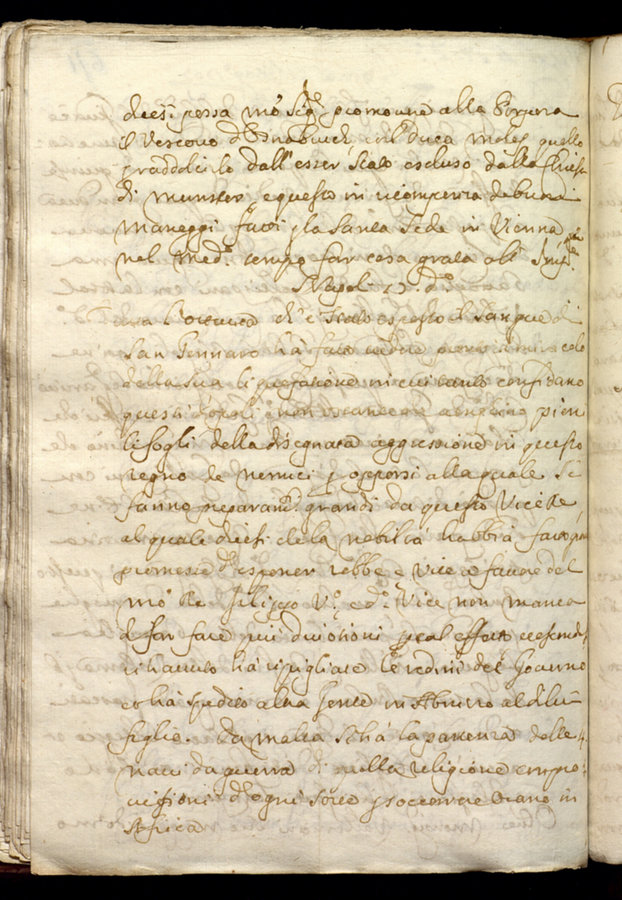 diesi possa mo. sig.re promovere alla Porpora
il Vescovo d'Osnabruch, col Duca Moles quello
raddolcirlo dall'esser stato escluso dalla Chiesa
di Munster, e questo in ricompenza de buoni
maneggi fatti p la Santa Sede in Vienna, e
nel med.o tempo far cosa grata all'Imp.re
Napoli 17. d.o
Tutta l'ottava ch'è stato esposto il sangue di
San Gennaro ha fatto vedere il miracolo
della sua liquefazione in cui tanto confidano
questi Popoli, non ostante che venghino pieni
li fogli della disegnata aggressione in questo
regno de nemici, p opporsi alla quale si
fanno preparam.ti grandi da questo Vice Re
al quale dicesi che la nobiltà habbia fatto
promesse di esponer robbe e vite a favore del
mo. Re Filippo V.o, e d.o Vice non manca
di far fare più divozioni p tal effetto
ha ripigliate le redini del Governo
et ha spedito altra gente in Abruzzo
figlio. Da Malta si ha la partenza delle 4
navi da guerra di quella religione con pro-
visioni d'ogni sorte p soccorrere Orano in
Africa